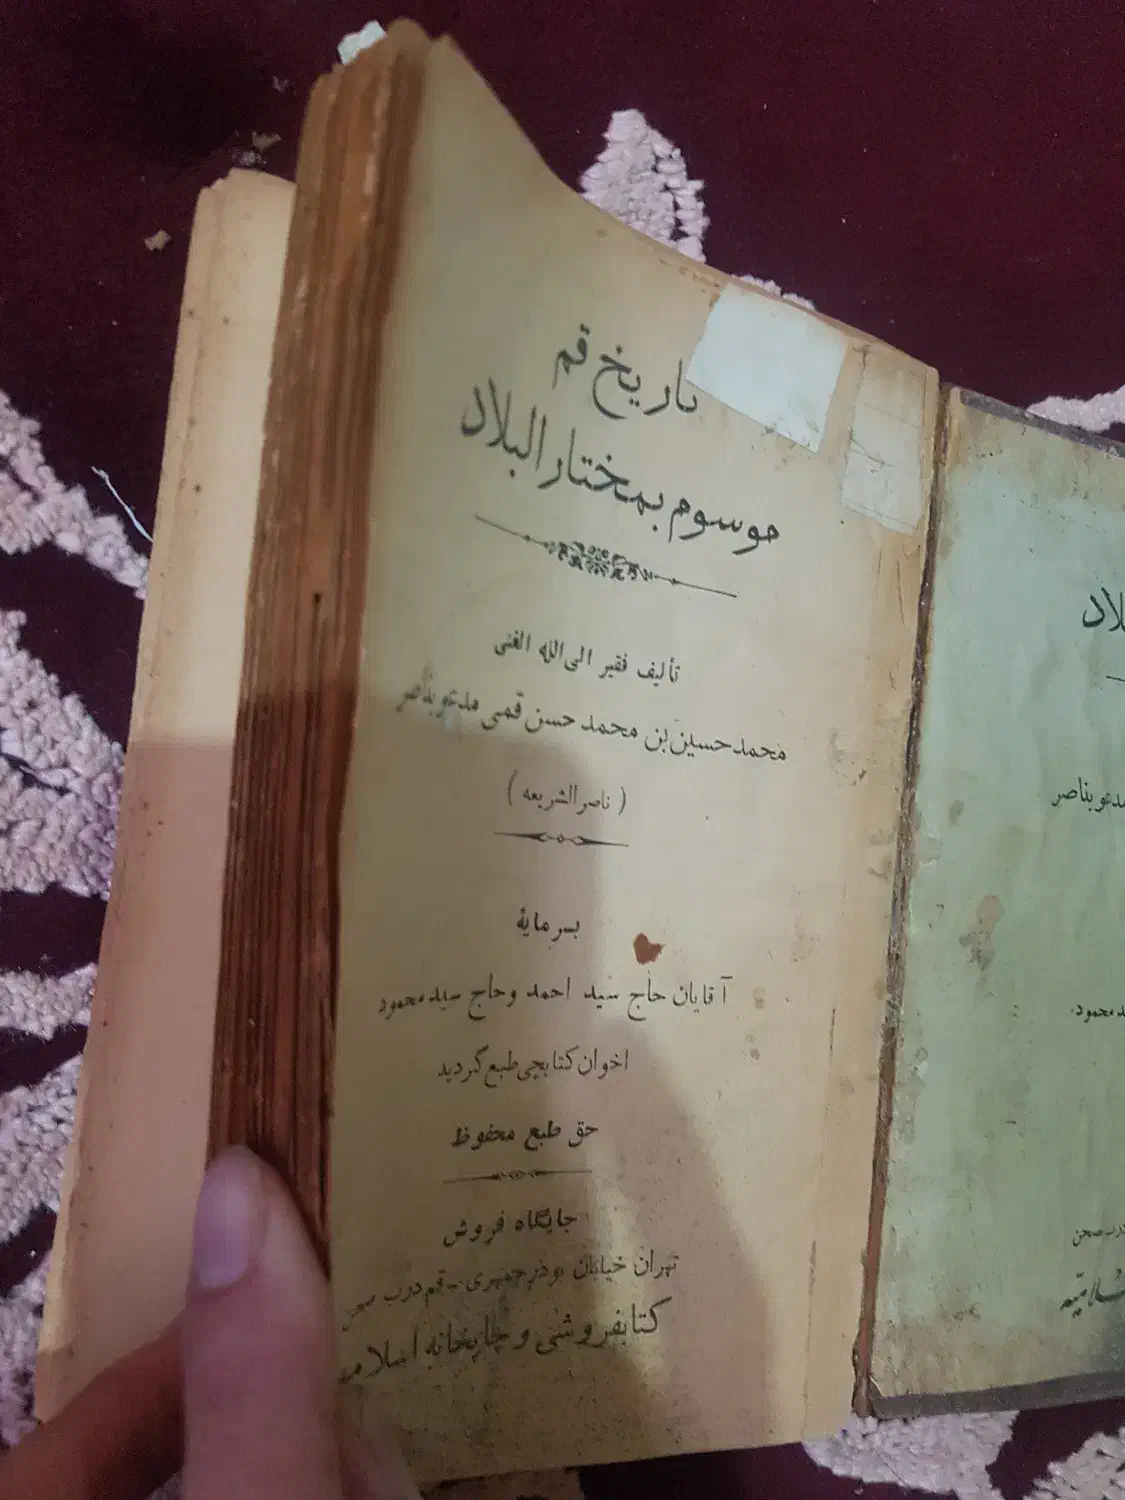 تاریخ قم
موسوم بمختار البلاد
تألیف فقیر الی الله الغنی
محمد حسین بن محمد حسن قمی مدعو بناصر
( ناصر الشریعه )
بسرمایهٔ
آقایان حاج سید احمد و حاج سید محمود
اخوان کتابچی طبع گردید
حق طبع محفوظ
جایگاه فروش
تهران خیابان بوذرجمهری - قم درب صحن
کتابفروشی و چاپخانه اسلامیه
مدعو بناصر
محمود
درب صحن